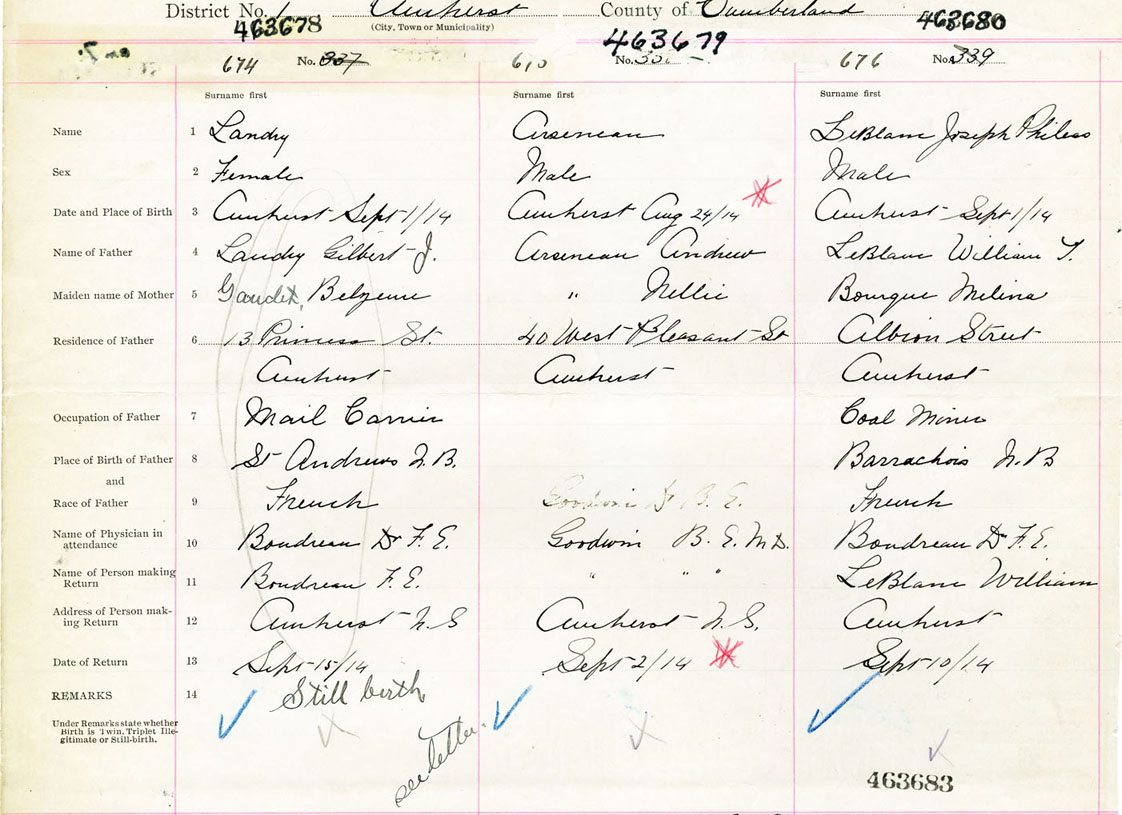 District No. 1 Amherst County of Cumberland
(City, Town or Municipality)
463678 463679 463680
674 No. 337 No. 676 No. 339
Surname first Surname first Surname first
Name 1 Landry Arseneau LeBlanc Joseph
Sex 2 Female Male Male
Date and Place of Birth 3 Amherst Sept 1/14 Amherst Aug 24/14 Amherst Sept 1/14
Name of Father 4 Landry Gilbert J. Arseneau Andrew LeBlanc William T.
Maiden name of Mother 5 Gaudet, " Nellie Bourque Melina
Residence of Father 6 13 Princess St. 40 West Pleasant St Albion Street
Amherst Amherst Amherst
Occupation of Father 7 Mail Carrier Coal Miner
Place of Birth of Father 8 St Andrews N.B. Barrachois N.B
and
Race of Father 9 French Goodwin Dr B. E. French
Name of Physician in
attendance 10 Boudreau Dr F. E. Goodwin B. E. M.D. Boudreau Dr F. E.
Name of Person making
Return 11 Boudreau F. E. " " " LeBlanc William
Address of Person mak-
ing Return 12 Amherst N.S Amherst N.S. Amherst
Date of Return 13 Sept 15/14 Sept 2/14 Sept 10/14
REMARKS 14 Still birth
Under Remarks state whether
Birth is Twin, Triplet Ille-
gitimate or Still-birth.
see letter.
463683